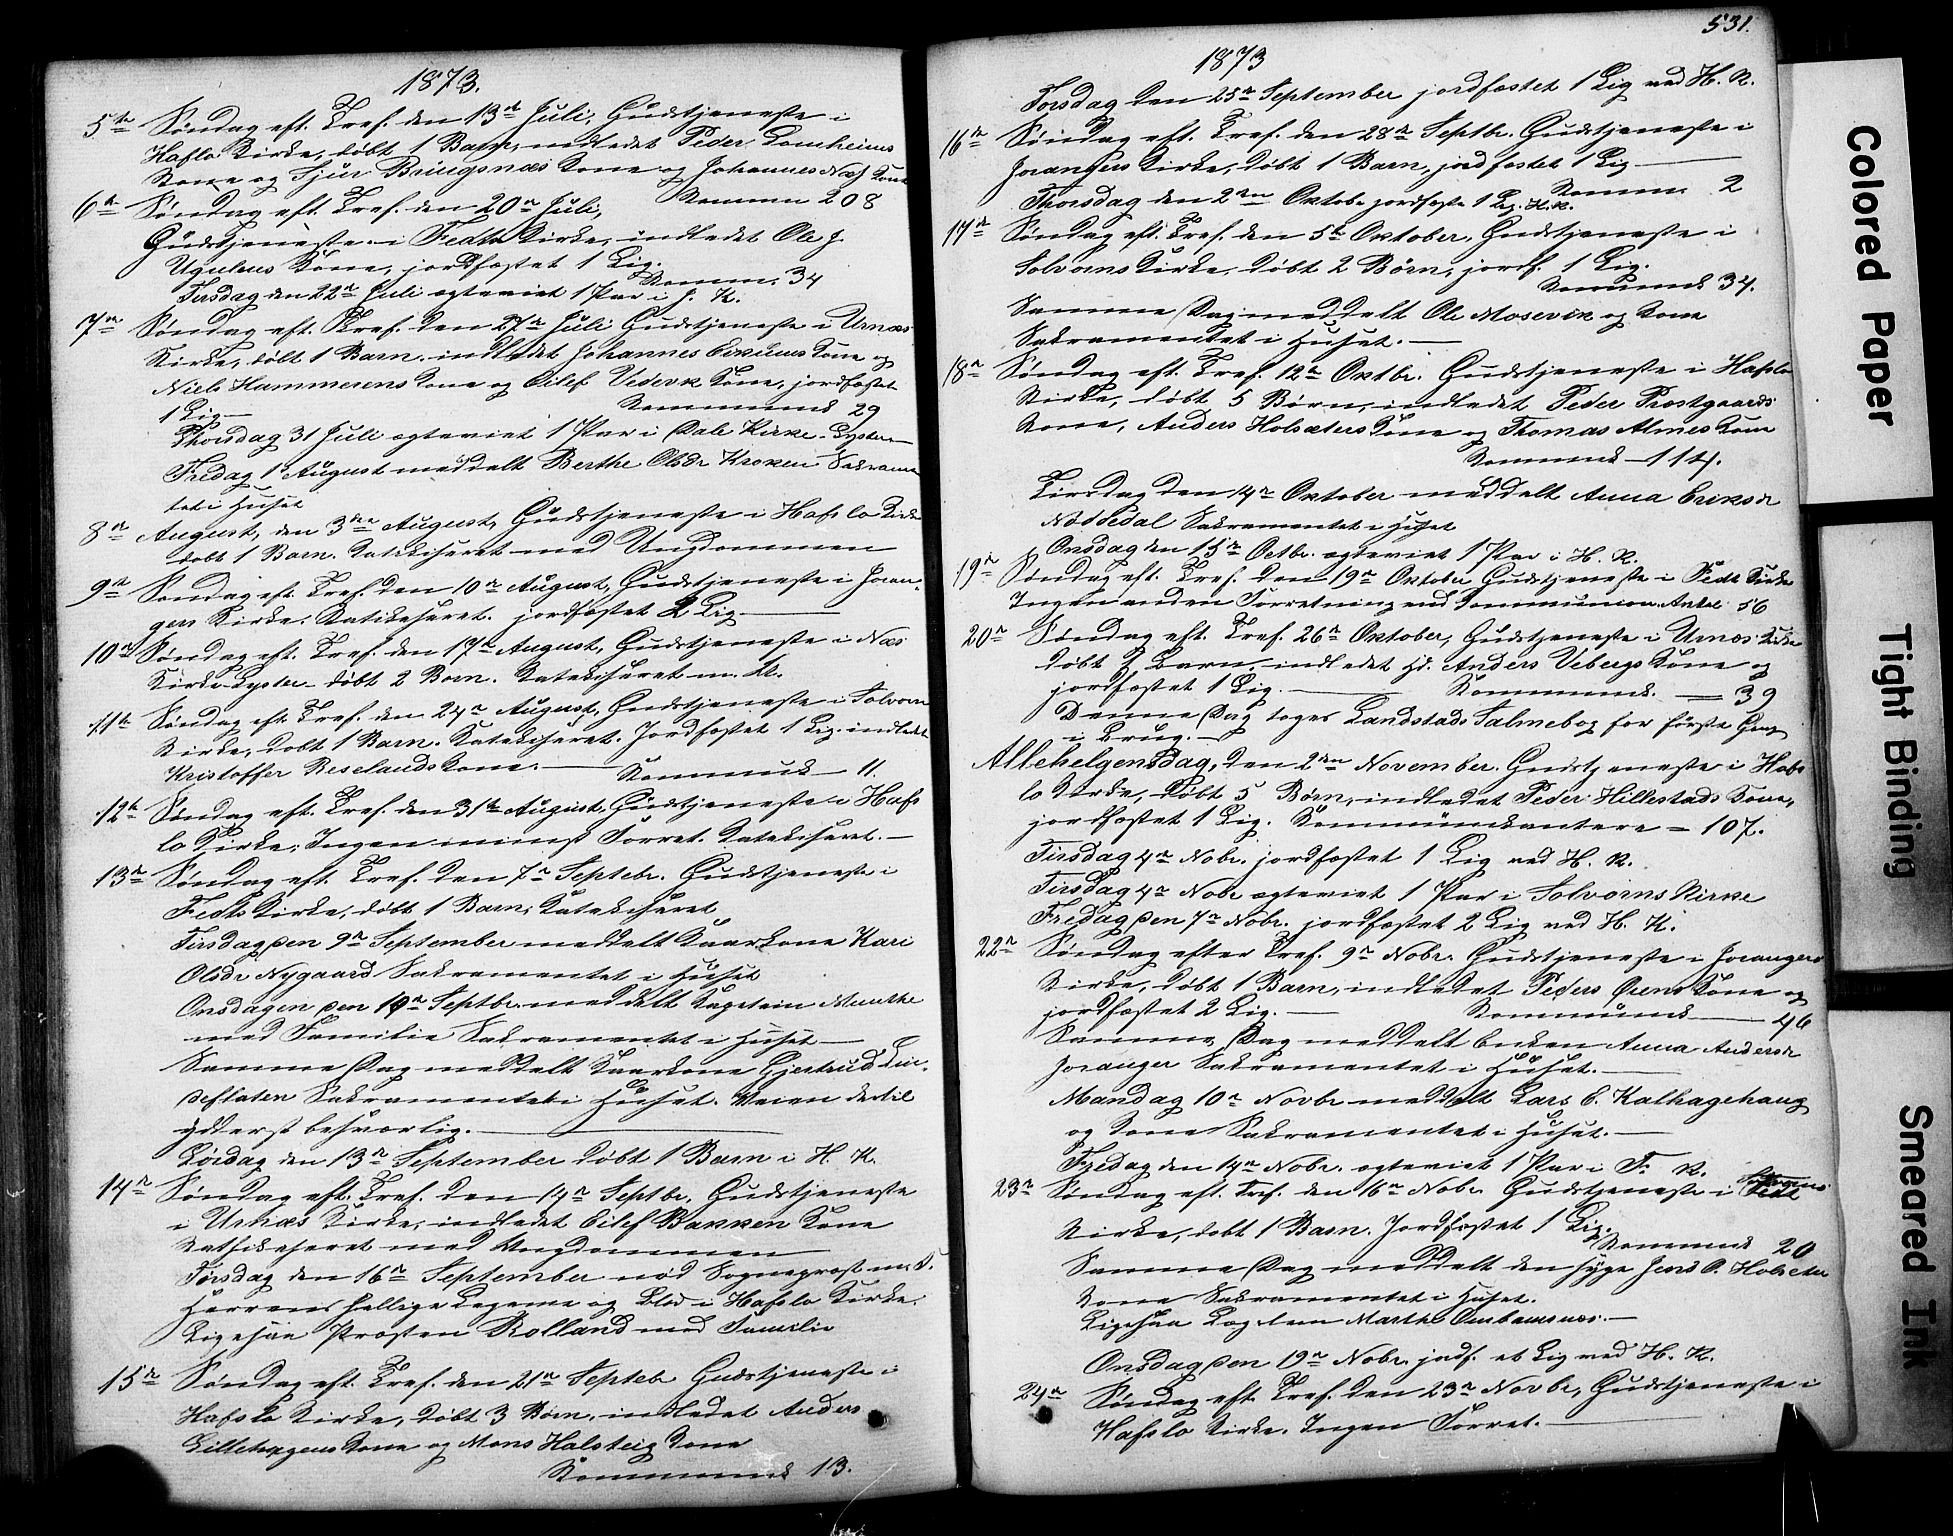 1873.
5te Søndag eft. Tref. den 13de Juli, Gudstjeneste i
Hafslo Kirke, døbt 1 Barn, indledet Peder
Kone og Sjur Bringsnæs Kone og Johannes Næs Kone
Kommun 208
6te Søndag eft. Tref. den 20de Juli,
Gudstjeneste i Fedts Kirke, indledet Ole J.
Kone, jordfæstet 1 Lig.
Kommun. 34
Tirsdag den 22de Juli ægteviet 1 Par i J. K.
7de Søndag eft. Tref. den 27de Juli Gudstjeneste i Urnæs
Kirke, døbt 1 Barn. indledet Johannes Kone og
Niels Hammerens Kone og Eilef Vedvik Kone, jordfæstet
1 Lig — Kommuned 29
Thorsdag 31 Juli ægteviet 1 Par i Dale Kirke - Lyster —
Fredag 1 August meddelt Berthe Olsdr Kroken Sakramen
tet i Huset
8de August, den 3die August, Gudstjeneste i Hafslo Kirke
døbt 1 Barn. Katekiseret med Ungdommen
9de Søndag eft. Tref. den 10de August, Gudstjeneste i Joran-
gers Kirke. Katikeseret. jordfæstet 2 Lig —
10de Søndag eft. Tref. den 17de August, Gudstjeneste i Næs
Kirke Lyster - døbt 2 Børn. Katekiseret m. U.
11te Søndag eft. Tref. den 24de August, Gudstjeneste i Solvorn
Kirke, døbt 1 Barn. Katekiseret. Jordfæstet 1 Lig. indledet
Kristoffer Reselands Kone. — Kommun. — 11.
12te Søndag eft. Tref. den 31te August, Gudstjeneste i Hafs
lo Kirke, Ingen Forret. Katekiseret. —
13de Søndag eft. Tref. den 7de Septebr. Gudstjeneste i
Fedts Kirke, døbt 1 Barn, Katekiseret
Tirsdag den 9de September meddelt Kaarkone Kari
Olsdr Nygaard Sakramentet i Huset
Onsdagen den 10de Septbr. meddelt Kaptein Munthe
med Familie Sakramentet i Huset —
Samme Dag meddelt Kaarkone Gjertrud Lin-
deflaten Sakramentet i Huset. Veien dertil
yderst besværlig. —
Lørdag den 13de September døbt 1 Barn i H. K.
14de Søndag eft. Tref. den 14de Septbr, Gudstjeneste
i Urnæs Kirke, indledet Eilef Bakken Kone
Kathikeseret med Ungdommen
Tirsdag den 16de September nød Sogneprest m. F.
Herrens hellige Legeme og Blod i Hafslo Kirke.
Ligesaa Prosten Rolland med Familie
15de Søndag eft. Tref. den 21de Septebr Gudstjeneste i
Hafslo Kirke, døbt 3 Børn, indledet Anders
Lillehagens Kone og Mons Halsteig Kone
Kommuned 13.
531.
1873
Torsdag den 25de September jordfæstet 1 Lig ved H. K.
16de Søndag eft. Tref. den 28de Septbr. Gudstjeneste i
Jorangers Kirke, døbt 1 Barn, jordfæstet 1 Lig —
Kommun. 2
Thorsdag den 2den Oktobr jordfæste 1 Lig. H. K.
17de Søndag eft. Tref. den 5te Oktober, Gudstjeneste i
Solvorns Kirke. døbt 2 Børn, jordf. 1 Lig.
Kommuned 34.
Samme Dag meddelt Ole Mosevik og Kone
Sakramentet i Huset. —
18de Søndag eft. Tref. 12te Oktbr. Gudstjeneste i Hafslo
Kirke, døbt 5 Børn, indledet Peder Prestgaards
Kone, Anders Holsæters Kone og Thomas Almes Kone
Kommuned — 114.
Tirsdag den 14de Oktober meddelt Anna Eriksdr
Sakramentet i Huset
Onsdag den 15de Octbr. ægteviet 1 Par i H. K.
19de Søndag eft. Tref. den 19de Oktober Gudstjeneste i Fedt Kirke
Ingen anden Forretning end Kommunion. Antal 56
20de Søndag eft. Tref. 26de Oktober, Gudstjeneste i Urnæs Kirke
døbt 1 Barn, indledet Anders Vebergs Kone og
jordfæstet 1 Lig. — Kommuned. — 39
Denne Dag toges Landstads Salmebog for første Gang
i Brug. —
Allehelgensdag, den 2den November. Gudstjeneste i Hafs
lo Kirke, døbt 5 Børn, indledet Peder Hillestads Kone,
jordfæstet 1 Lig. Kommunikantere = 107.
Tirsdag 4de Nobr. jordfæstet 1 Lig ved H. K.
Tirsdag 4de Nobr ægteviet 1 Par i Solvorns Kirke
Fredag den 7de Nobr. jordfæstet 2 Lig ved H. K.
22de Søndag efter Tref. 9de Nobr. Gudstjeneste i Jorangers
Kirke, døbt 1 Barn, indledet Peders Ørens Kone og
jordfæstet 2 Lig. — Kommuned — 46
Samme Dag meddelt Enken Anna Andersdr
Joranger Sakramentet i Huset. —
Mandag 10de Novbr meddelt Lars E. Kalhagehaug
og Kone Sakramentet i Huset. —
Fredag den 14de Nobr. ægteviet 1 Par i F. K.
23de Søndag eft. Tref. den 16de Nobr Gudstjeneste i Solvorns
Kirke, døbt 1 Barn. Jordfæstet 1 Lig.
Kommuned 20
Samme Dag meddelt den syge Jens O. Holsæter
Kone Sakramentet i Huset.
Ligesaa Lægdlem Marthe —
Onsdag den 19de Nobr. jordf. et Lig ved H. K.
24de Søndag eft. Tref. den 23de Novbr, Gudstjeneste i
Hafslo Kirke. Ingen Forret. —
Colored Paper
Tight Binding
Smeared Ink